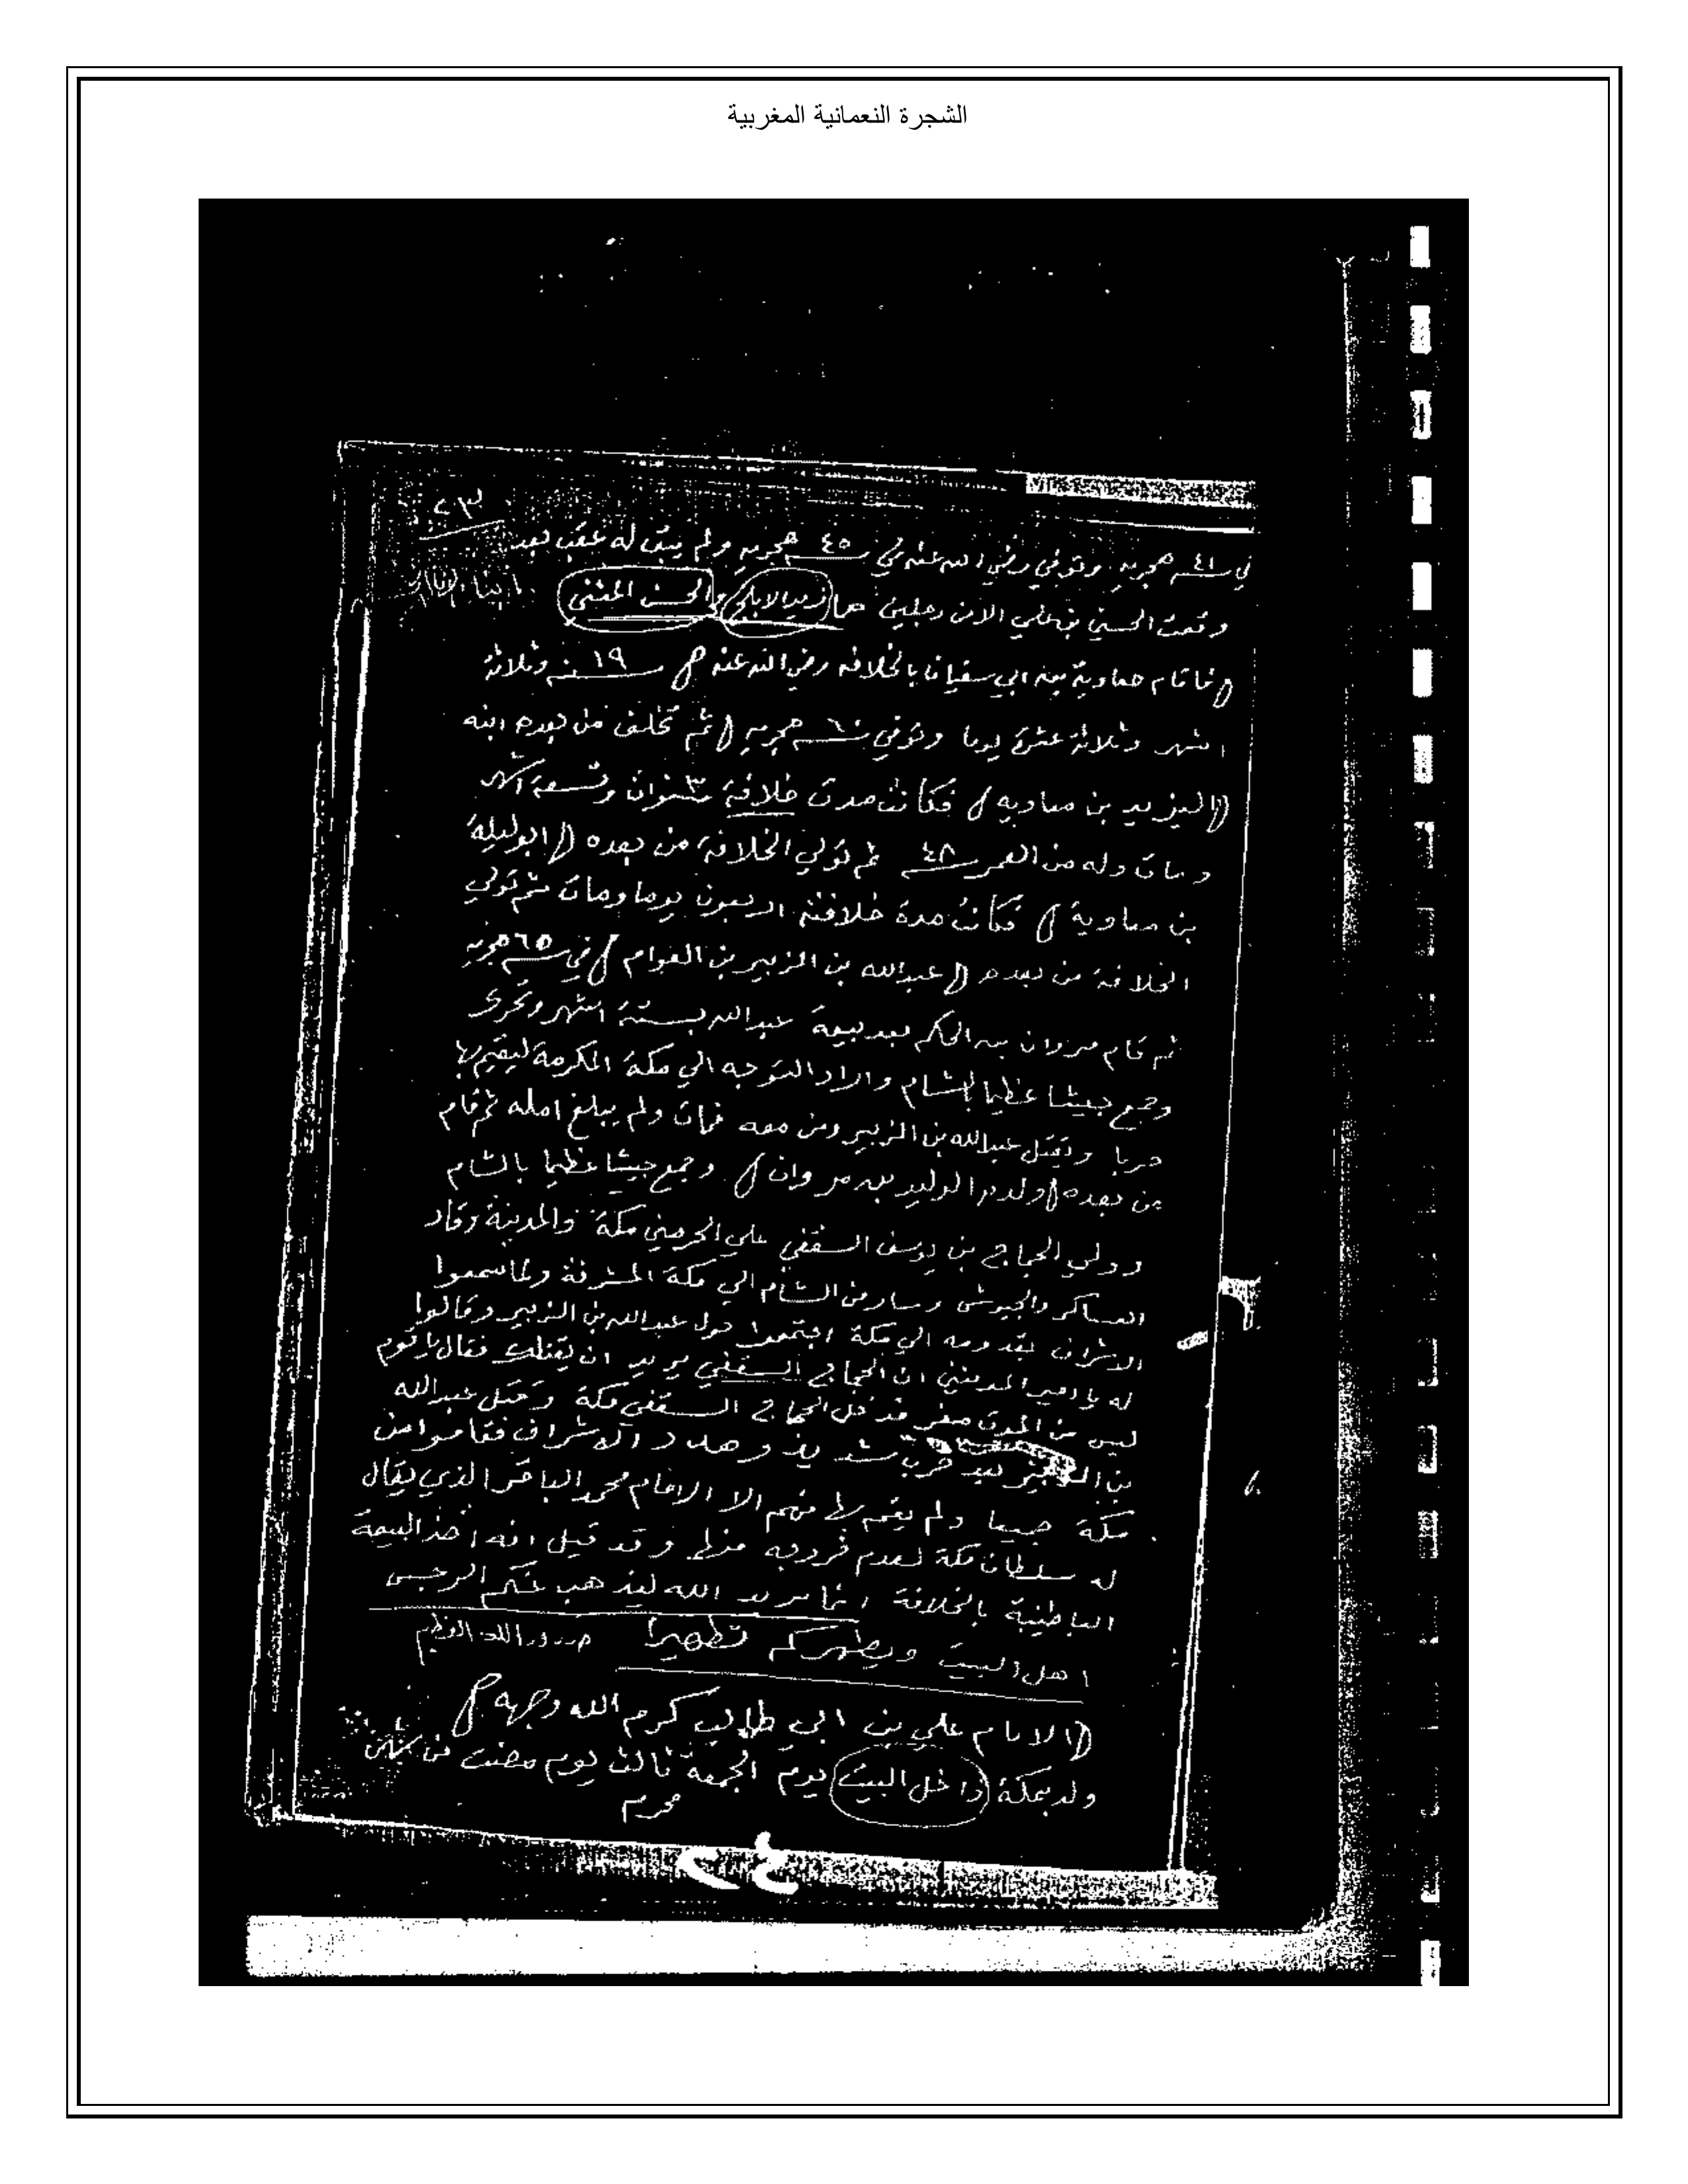 الشجرة النعمانية المغربية
٢٣
في ٤١ سنة هجريه وتوفي رضي الله عنه في سنة ٤٥ هجريه ولم يبق له عقب بعد
وقعت الا من رجلين هما زيد الابلج والحسن المثنى
فاقام معاويه بن ابي سفيان بالخلافه رضي الله عنه ١٩ سنه وثلاثة
اشهر وثلاثة عشرة يوما وتوفي سنة ٦٠ هجريه ثم تخلف من بعده ابنه
اليزيد بن معاويه فكانت مدت خلافة ٣ سنوات وتسعة اشهر
ومات وله من العمر ٤٨ سنة ثم تولي الخلافة من بعده ابو ليلة
بن معاوية فكانت مدة خلافته اربعون يوما ومات ثم تولي
الخلافة من بعده عبدالله بن الزبير بن العوام في سنة ٦٥ هجريه
ثم قام مروان بن الحكم بعد بيعة عبدالله بستة اشهر وتحرى
وجمع جيشا عظيما بالشام واراد التوجه الي مكة المكرمة ليقيم بها
حربا ويقتل عبدالله بن الزبير ومن معه فمات ولم يبلغ امله ثم قام
من بعده ولده الوليد بن مروان وجمع جيشا عظيما بالشام
وولي الحجاج بن يوسف السقفي علي الحرمين مكة والمدينة وقاد
العساكر والجيوش وسار من الشام الي مكة المشرفة ولما سمعوا
الاشراف بقدومه الي مكة اجتمعوا حول عبدالله بن الزبير وقالوا
له يا امير المومنين ان الحجاج السقفي يريد ان يقتلك فقال يا قوم
ليس من الموت مفر فدخل الحجاج السقفي مكة وقتل عبدالله
بن الزبير بعد حرب شديد الاشراف فقاموا من
مكة جميعا ولم يقم بها منهم الا الامام محمد الباقر الذي يقال
له سلطان مكة لعدم خروجه منها وقد قيل انه اخذ البيعة
الباطنية بالخلافة انما يريد الله ليذهب عنكم الرجس
اهل البيت ويطهركم تطهيرا صدق الله العظيم
الامام علي بن ابي طالب كرم الله وجهه
ولد بمكة داخل البيت يوم الجمعة ثالث يوم مضت من شهر
محرم
٢٤